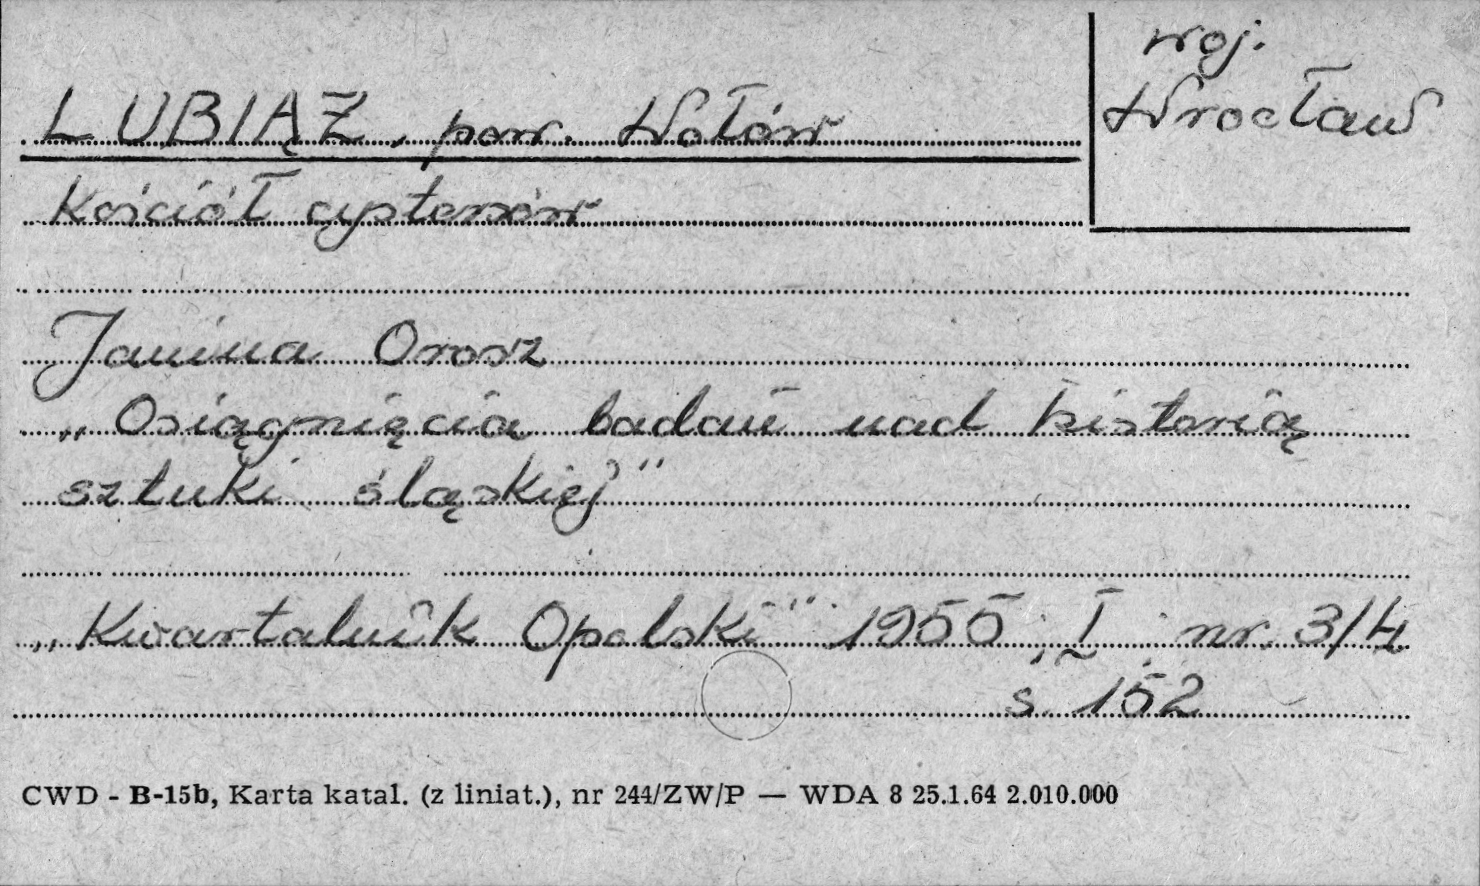 woj.
Wrocław
LUBIĄŻ, pow. Wołów
Kościół cystersów
Janina Orosz
„Osiągnięcia badań nad historią
sztuki śląskiej"
„Kwartalnik Opolski" 1955, I nr. 3/4
s. 152
CWD - B-15b, Karta katal. (z liniat.), nr 244/ZW/P — WDA 8 25.1.64 2.010.000